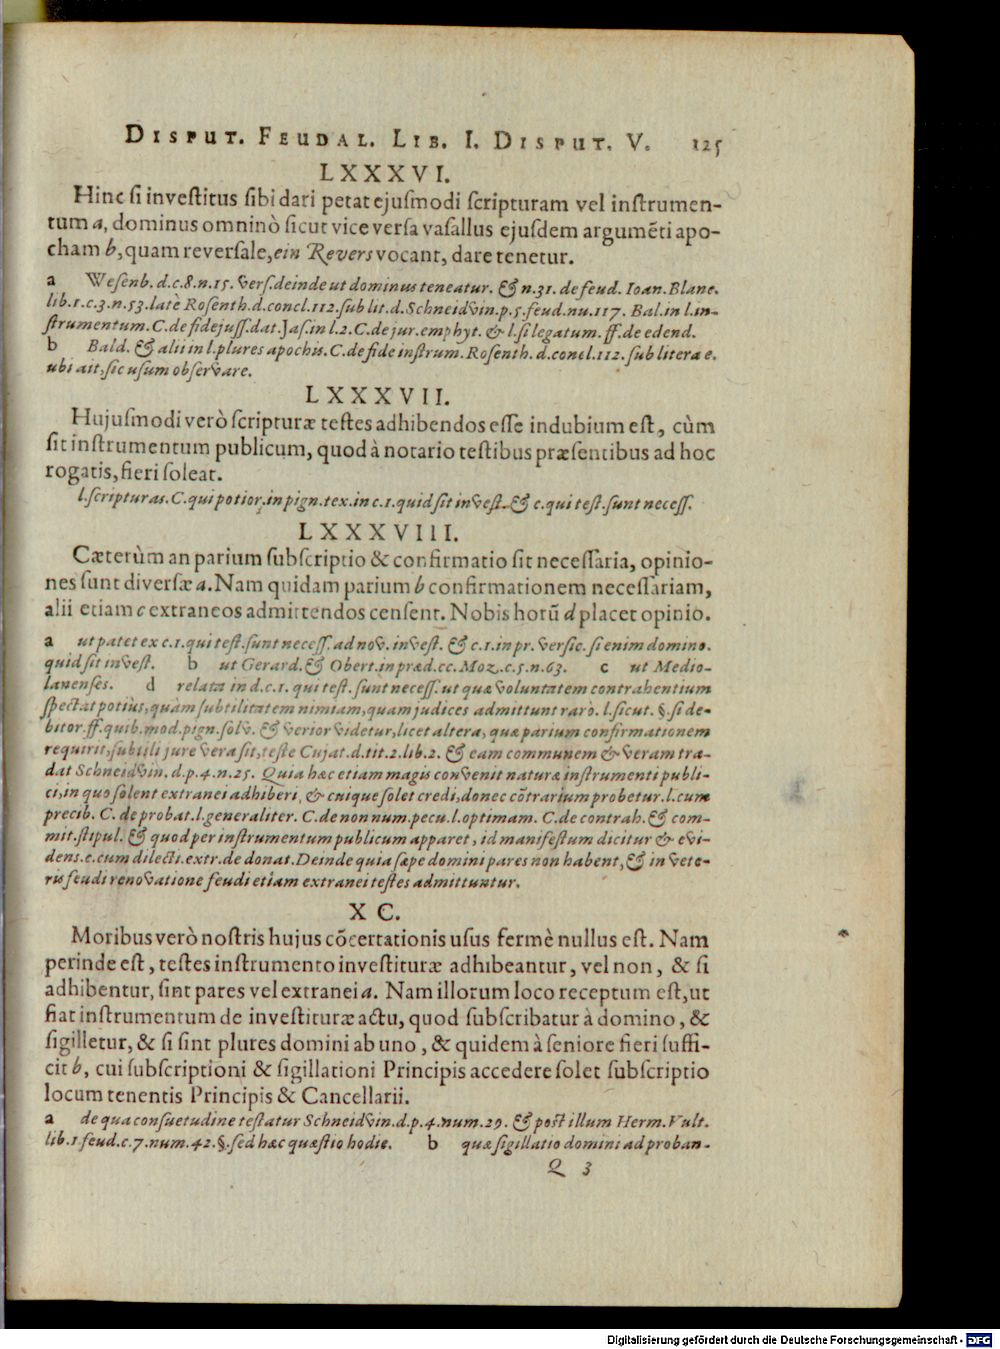 DISPUT. FEUDAL. LIB. I. DISPUT. V. 125
LXXXVI.
Hinc si investitus sibi dari petat ejusmodi scripturam vel instrumen-
tum a, dominus omninò sicut vice versa vasallus ejusdem argumēti apo-
cham b, quam reversale, ein Revers vocant, dare tenetur.
a Wesenb. d. c. 8. n. 15. vers. deinde ut dominus teneatur. & n. 31. de feud. Ioan. Blanc.
lib. 1. c. 3. n. 53. latè Rosenth. d. concl. 112. sub lit. d. Schneidvin. p. 5. feud. nu. 117. Bal. in l. in-
strumentum. C. de fidejuss. dat. Jas. in l. 2. C. de jur. emphyt. & l. si legatum. ff. de edend.
b Bald. & alii in l. plures apochis. C. de fide instrum. Rosenth. d. concl. 112. sub litera e.
ubi ait, sic usum observare.
LXXXVII.
Hujusmodi verò scripturæ testes adhibendos esse indubium est, cùm
sit instrumentum publicum, quod à notario testibus præsentibus ad hoc
rogatis, fieri soleat.
l. scripturas. C. qui potior. in pign. tex. in c. 1. quid sit invest. & c. qui test. sunt necess.
LXXXVIII.
Cæterùm an parium subscriptio & confirmatio sit necessaria, opinio-
nes sunt diversæ a. Nam quidam parium b confirmationem necessariam,
alii etiam c extraneos admittendos censent. Nobis horū d placet opinio.
a ut patet ex c. 1. qui test. sunt necess. ad nov. invest. & c. 1. in pr. versic. si enim domino.
quid sit invest. b ut Gerard. & Obert. in præd. cc. Moz. c. 5. n. 63. c ut Medio-
lanenses. d relata in d. c. 1. qui test. sunt necess. ut quæ voluntatem contrahentium
spectat potius, quàm subtilitatem nimiam, quam judices admittunt rarò. l. sicut. §. si de-
bitor. ff. quib. mod. pign. solv. & verior videtur, licet altera, quæ parium confirmationem
requirit, subtili jure vera sit, teste Cujat. d. tit. 2. lib. 2. & eam communem & veram tra-
dat Schneidvin. d. p. 4. n. 25. Quia hæc etiam magis convenit naturæ instrumenti publi-
ci, in quo solent extranei adhiberi, & cuique solet credi, donec cōtrarium probetur. l. cum
precib. C. de probat. l. generaliter. C. de non num. pecu. l. optimam. C. de contrah. & com-
mit. stipul. & quod per instrumentum publicum apparet, id manifestum dicitur & evi-
dens. c. cum dilecti. extr. de donat. Deinde quia sæpe domini pares non habent, & in vete-
ris feudi renovatione feudi etiam extranei testes admittuntur.
XC.
Moribus verò nostris hujus cōcertationis usus fermè nullus est. Nam
perinde est, testes instrumento investituræ adhibeantur, vel non, & si
adhibentur, sint pares vel extranei a. Nam illorum loco receptum est, ut
fiat instrumentum de investituræ actu, quod subscribatur à domino, &
sigilletur, & si sint plures domini ab uno, & quidem à seniore fieri suffi-
cit b, cui subscriptioni & sigillationi Principis accedere solet subscriptio
locum tenentis Principis & Cancellarii.
a de qua consuetudine testatur Schneidvin. d. p. 4. num. 29. & post illum Herm. Vult.
lib. 1. feud. c. 7. num. 42. §. sed hæc quæstio hodie. b quæ sigillatio domini ad proban-
Q 3
Digitalisierung gefördert durch die Deutsche Forschungsgemeinschaft - DFG